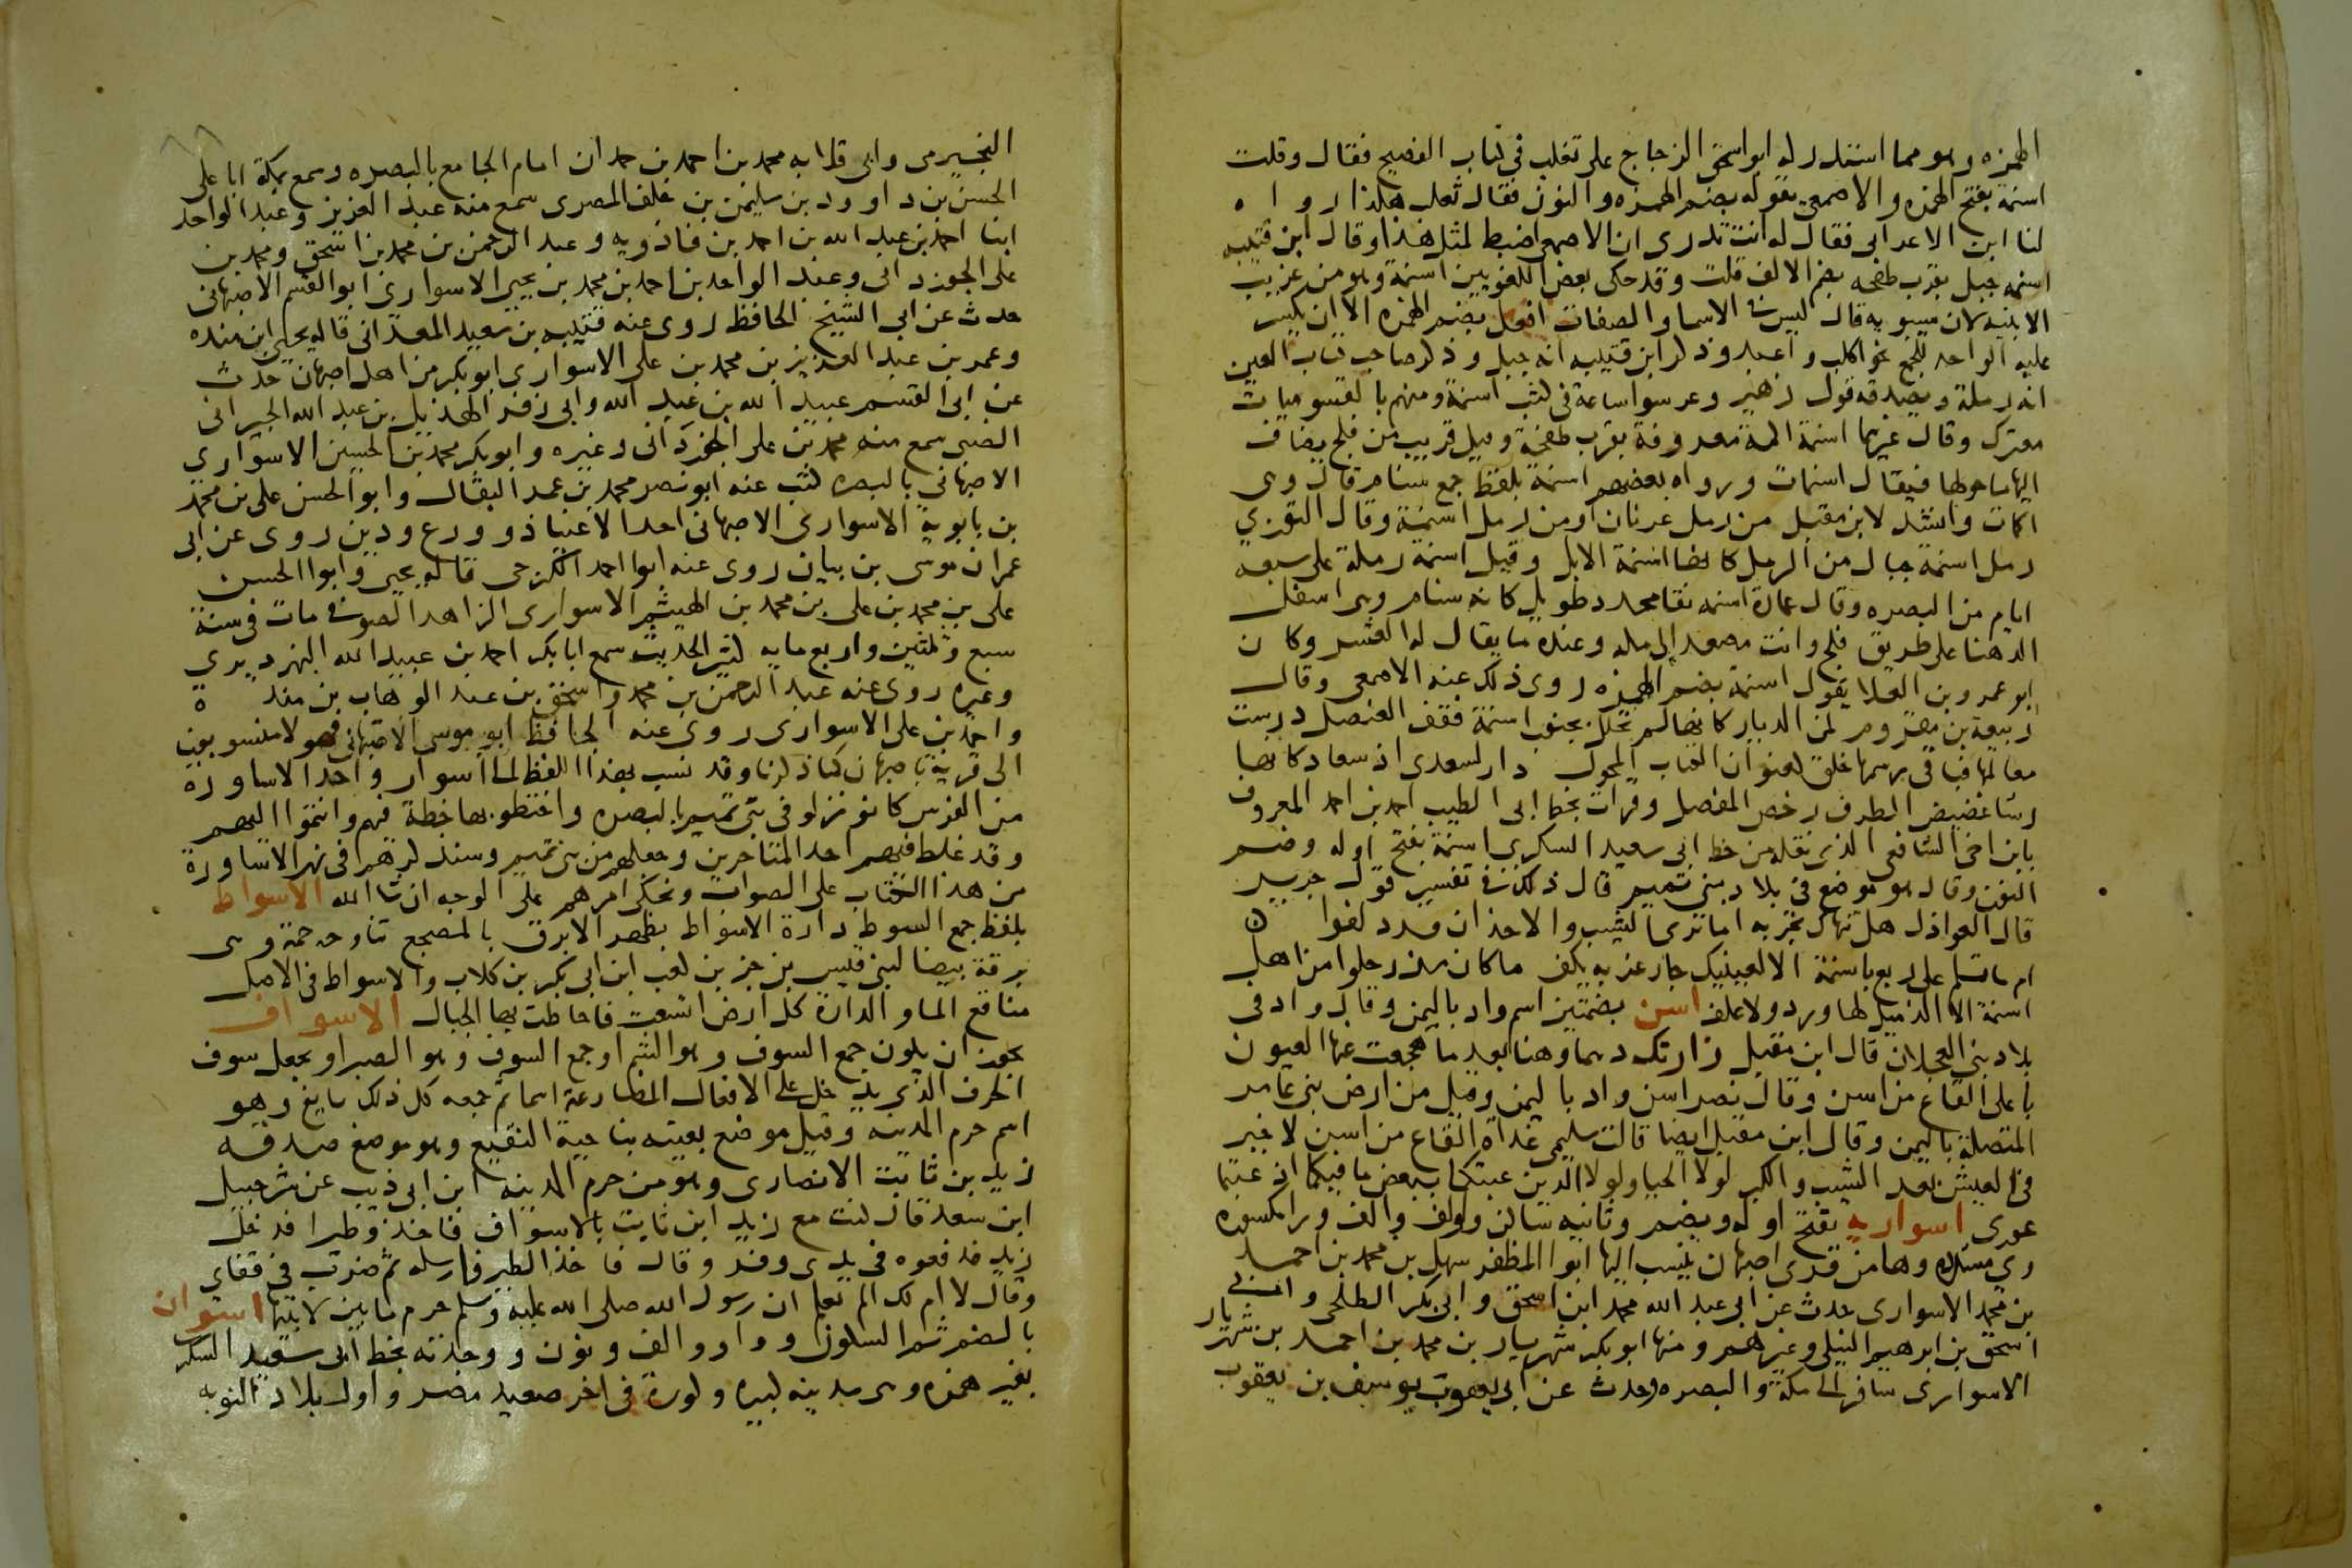 الهمزه وهو مما استدركه ابو اسحق الزجاج على ثعلب في كتاب الفصيح فقال وقلت
اسنمة بفتح الهمزه والاصمعى يقوله بضم الهمزه والنون فقال ثعلب هكذا رواه
لنا ابن الاعرابى فقال له انت تدرى ان الاصمعى اضبط لمثل هذا وقال ابن قتيبه
اسنمه جبل بقرب طخفه بضم الالف قلت وقد حكى بعض اللغويين اسنمة وهو من غريب
الابنيه لان سيبويه قال ليس فى الاسما والصفات افعل بضم الهمزه الا ان يكسر
عليه الواحد للجمع نحو اكلب واعبد وذكر ابن قتيبه انه جبل وذكر صاحب كتاب العين
انه رملة ويصدقه قول زهير وعرسوا ساعة فى كثب اسنمة ومنهم بالقسوميات
معترك وقال غيرهما اسنمة اكمة معروفة بقرب طخفة وقيل قريب من فلج يضاف
اليها ما حولها فيقال اسنمات ورواه بعضهم اسنمة بلفظ جمع سنام قال وهى
اكمات وانشد لابن مقبل من رمل عرنان او من رمل اسنمة وقال التوزي
رمل اسنمة جبال من الرمل كانها اسنمة الابل وقيل اسنمة رملة على سبعه
ايام من البصره وقال عمارة اسنمه نقا محدد طويل كانه سنام وهى اسفل
الدهنا على طريق فلج وانت مصعد الى مكه وعنده ما يقال له العشر وكان
ابو عمرو بن العلا يقول اسنمة بضم الهمزه روى ذلك عنه الاصمعى وقال
ربيعة بن مقروم لمن الديار كانها لم تحلل بجنوب اسنمة فقف العنصل درست
معالمها فباقى رسمها خلق كعنوان الكتاب المحول دار لسعدى اذ سعاد كانها
رشا غضيض الطرف رخص المفصل وقرات بخط ابى الطيب احمد بن احمد المعروف
بابن اخى الشافعى الذى نقله من خط ابى سعيد السكرى اسنمة بفتح اوله وضم
النون وقال هو موضع فى بلاد بنى تميم قال ذلك فى تفسير قول جرير
قال العواذل هل تنهاك تجربه اما ترى الشيب والاخدان قد دلفوا
ام ما تلم على ربع باسنمة الا لعينيك جار غربه يكف ما كان مذ رحلوا من اهل
اسنمة الا الذميل لها ورد ولا علف اسن بضمتين اسم واد باليمن وقال واد فى
بلاد بنى العجلان قال ابن مقبل زارتك دهما وهنا بعد ما هجعت عنها العيون
باعلى القاع من اسن وقال نصر اسن واد باليمن وقيل من ارض بنى عامر
المتصلة باليمن وقال ابن مقبل ايضا قالت سليمى غداة القاع من اسن لا خير
فى العيش بعد الشيب والكبر لولا الحيا ولولا الدين عبتكما ببعض ما فيكما اذ عبتما
عورى اسواريه بفتح اوله ويضم وثانيه ساكن وواو والف ورا مكسوره
وى مشدده وها من قرى اصبهان ينسب اليها ابو المظفر سهل بن محمد بن احمد
بن محمد الاسوارى حدث عن ابى عبد الله محمد ابن اسحق وابى بكر الطلحى
اسحق بن ابرهيم النيلى وغيرهم ومنها ابو بكر شهريار بن محمد بن احمد بن شهريار
الاسوارى سافر الى مكة والبصره وحدث عن ابى يعقوب يوسف بن يعقوب
النجيرمى وابى قلابه محمد بن احمد بن حمدان امام الجامع بالبصره وسمع بمكة ابا على
الحسن بن داوود بن سليمن بن خلف المصرى سمع منه عبد العزيز وعبد الواحد
ابنا احمد بن عبد الله بن احمد بن فاذويه وعبد الرحمن بن محمد بن اسحق ومحمد بن
على الجوزدانى وعبد الواحد بن احمد بن محمد بن يحيى الاسوارى ابو القسم الاصبهانى
حدث عن ابى الشيخ الحافظ روى عنه قتيبه بن سعيد المعدانى قاله يحيى ابن منده
وعمر بن عبد العزيز بن محمد بن على الاسوارى ابو بكر من اهل اصبهان حدث
عن ابى القسم عبيد الله بن عبد الله وابى زفر الهذيل بن عبد الله الجيرانى
الضبى سمع منه محمد بن على الجوزدانى وغيره وابو بكر محمد بن الحسين الاسوارى
الاصبهانى بالبصره كتب عنه ابو نصر محمد بن عمر البقال وابو الحسن على بن محمد
بن بابويه الاسوارى الاصبهانى احد الاغنيا ذو ورع ودين روى عن ابى
عمران موسى بن بيان روى عنه ابو احمد الكرجى قاله يحيى وابو الحسن
على بن محمد بن على بن محمد بن الهيثم الاسوارى الزاهد الصوفى مات فى سنة
سبع وثلثين واربع مايه كثير الحديث سمع ابا بكر احمد بن عبيد الله النهرديرى
وغيره روى عنه عبد الرحمن بن محمد واسحق بن عبد الوهاب بن منده
واحمد بن على الاسوارى روى عنه الحافظ ابو موسى الاصبهانى فهولا منسوبون
الى قرية باصبهان كما ذكرنا وقد نسب بهذا اللفظ الى اسوار واحد الاساورة
من الفرس كانو نزلو فى بنى تميم بالبصره واختطو بها خطة فيهم وانتموا اليهم
وقد غلط فيهم احد المتاخرين وجعلهم من بنى تميم وسنذكرهم فى نهر الاساورة
من هذا الكتاب على الصواب ونحكى امرهم على الوجه ان شا الله الاسواط
بلفظ جمع السوط دارة الاسواط بظهر الابرق بالمضجع تناوحه حمة وهى
برقة بيضا لبنى قيس بن جز بن كعب ابن ابى بكر بن كلاب والاسواط فى الاصل
مناقع الما والدارة كل ارض اتسعت فاحاطت بها الجبال الاسواف
يجوز ان يكون جمع السوف وهو الشم او جمع السوف وهو الصبر او يجعل سوف
الحرف الذى يدخل على الافعال المضارعة اسما ثم جمعه كل ذلك سايغ وهو
اسم حرم المدينه وقيل موضع بعينه بناحية البقيع وهو موضع صدقه
زيد بن ثابت الانصارى وهو من حرم المدينه ابن ابى ذيب عن شرحبيل
ابن سعد قال كنت مع زيد ابن ثابت بالاسواف فاخذو طيرا فدخل
زيد فدفعوه فى يدى وفرو وقال فاخذ الطير فارسله ثم ضرب فى قفاى
وقال لا ام لك الم تعلم ان رسول الله صلى الله عليه وسلم حرم ما بين لابتيها اسوان
بالضم ثم السكون وواو والف ونون ووجدته بخط ابى سعيد السكرى
بغير همزه وهى مدينه كبيره وكورة فى اخر صعيد مصر واول بلاد النوبه